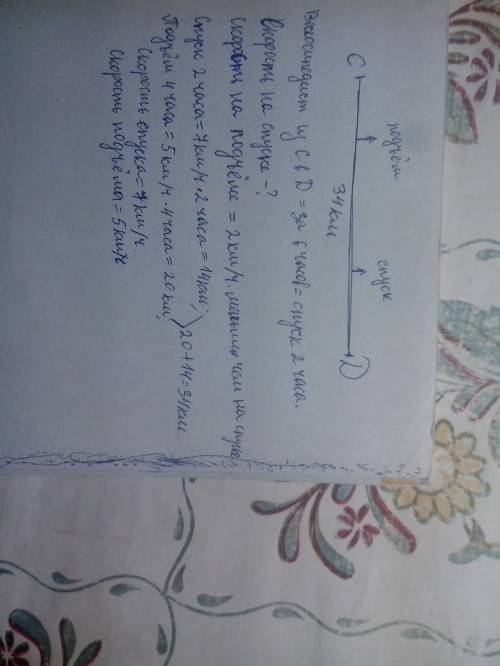 подъём спуск
C 34 км D
Велосипедист. из C в D = за 6 часов = спуск 2 часа.
Скорость на спуске - ?
Скорость на подъёме = 2 км/ч. меньше чем на спуске
Спуск 2 часа = 7 км/ч · 2 часа = 14 км;
Подъём 4 часа = 5 км/ч · 4 часа = 20 км; 20 + 14 = 34 км.
Скорость спуска = 7 км/ч.
Скорость подъёма = 5 км/ч